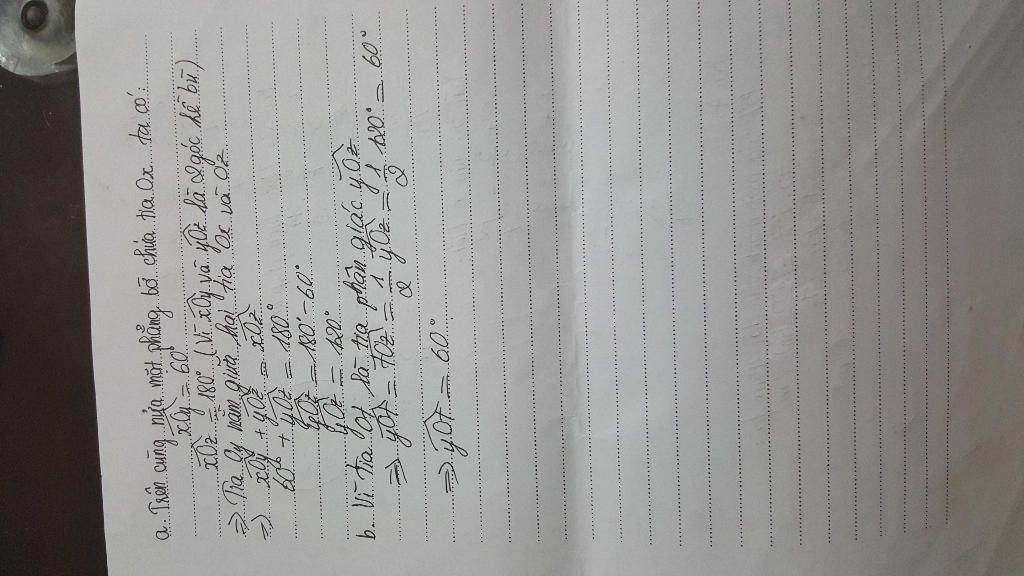 a. Trên cùng nửa mặt phẳng bờ chứa tia Ox ta có:
xOy = 60°
xOz = 180° (Vì xOy và yOz là 2 góc kề bù)
=> Tia Oy nằm giữa hai tia Ox và Oz
=> xOy + yOz = xOz
60° + yOz = 180°
yOz = 180° - 60°
yOz = 120°
b. Vì tia Ot là tia phân giác yOz
=> yOt = tOz = 1/2 yOz = 1/2 120° = 60°
=> yOt = 60°